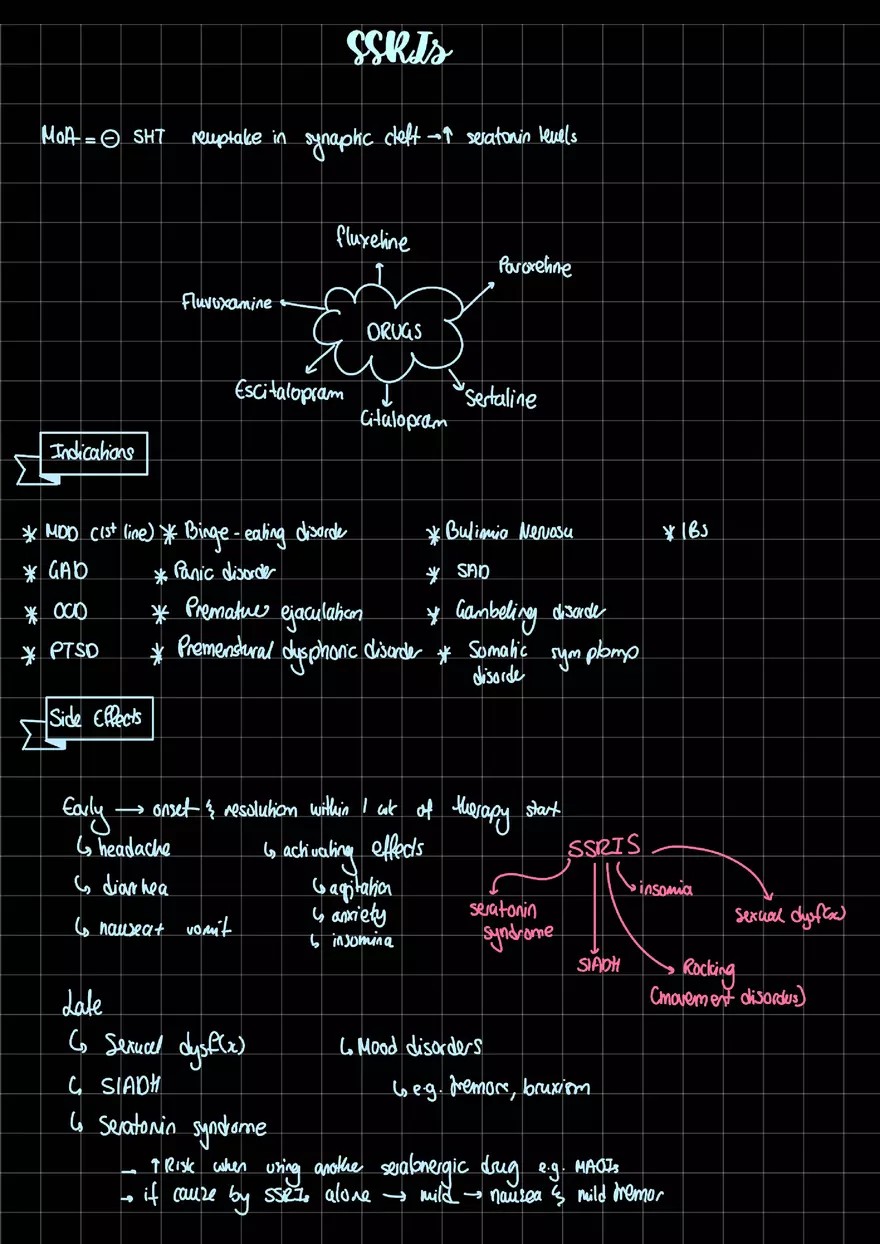 SSRIs
MoA = ⊖ 5HT reuptake in synaptic cleft → ↑ seratonin levels
fluxetine
Paroxetine
Fluvoxamine
DRUGS
Escitalopram
Sertaline
Citalopram
Indications
* MDD (1st line) * Binge-eating disorder * Bulimia Nervosa * IBS
* GAD * Panic disorder * SAD
* OCD * Premature ejaculation * Gambeling disorder
* PTSD * Premenstural dysphoric disorder * Somatic symptomp
disorder
Side Effects
Early → onset & resolution within 1 wk of therapy start
↳ headache ↳ activating effects
↳ diarrhea ↳ agitation
↳ anxiety
↳ nausea + vomit ↳ insomina
SSRIS
insomia
seratonin
syndrome
sexual dysf(x)
SIADH
Rocking
(movement disorders)
Late
↳ Sexual dysf(x) ↳ Mood disorders
↳ SIADH ↳ e.g. tremors, bruxism
↳ Seratonin syndrome
→ ↑ Risk when using another seratonergic drug e.g. MAOIs
→ if cause by SSRIs alone → mild → nausea & mild tremor